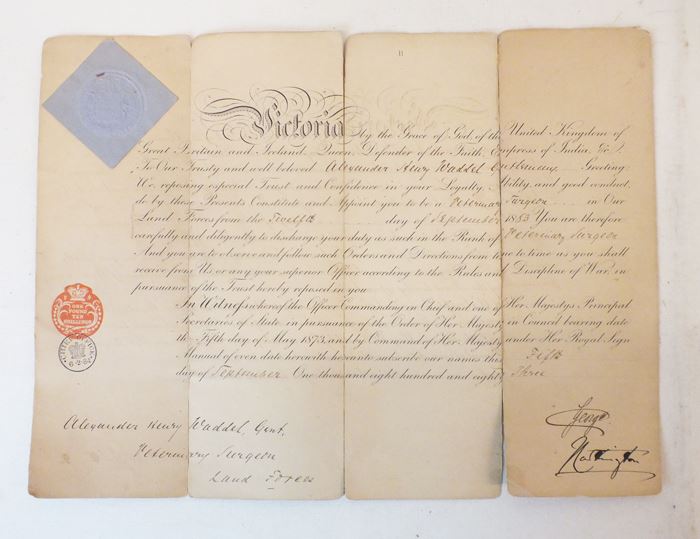 Victoria by the Grace of God, of the United Kingdom of
Great Britain and Ireland, Queen, Defender of the Faith, Empress of India, &c.
To Our Trusty and well beloved Alexander Henry Waddel Gentleman Greeting
We, reposing especial Trust and Confidence in your Loyalty, Ability, and good conduct,
do by these Presents Constitute and Appoint you to be a Veterinary Surgeon in Our
Land Forces from the Twelfth day of September 1883 You are therefore
carefully and diligently to discharge your duty as such in the Rank of Veterinary Surgeon
And you are to observe and follow such Orders and Directions from time to time as you shall
receive from Us or any your superior Officer according to the Rules and Discipline of War, in
pursuance of the Trust hereby reposed in you
In Witness whereof the Officer Commanding in Chief and one of Her Majestys Principal
Secretaries of State in pursuance of the Order of Her Majesty in Council bearing date
the Fifth day of May 1873, and by Command of Her Majesty under Her Royal Sign
Manual of even date herewith hereunto subscribe our names this Fifth
day of September One thousand eight hundred and eighty Three
ONE
POUND
TEN
SHILLINGS
6·2·84
George
Alexander Henry Waddel, Gent.
Veterinary Surgeon
Land Forces
Hartington